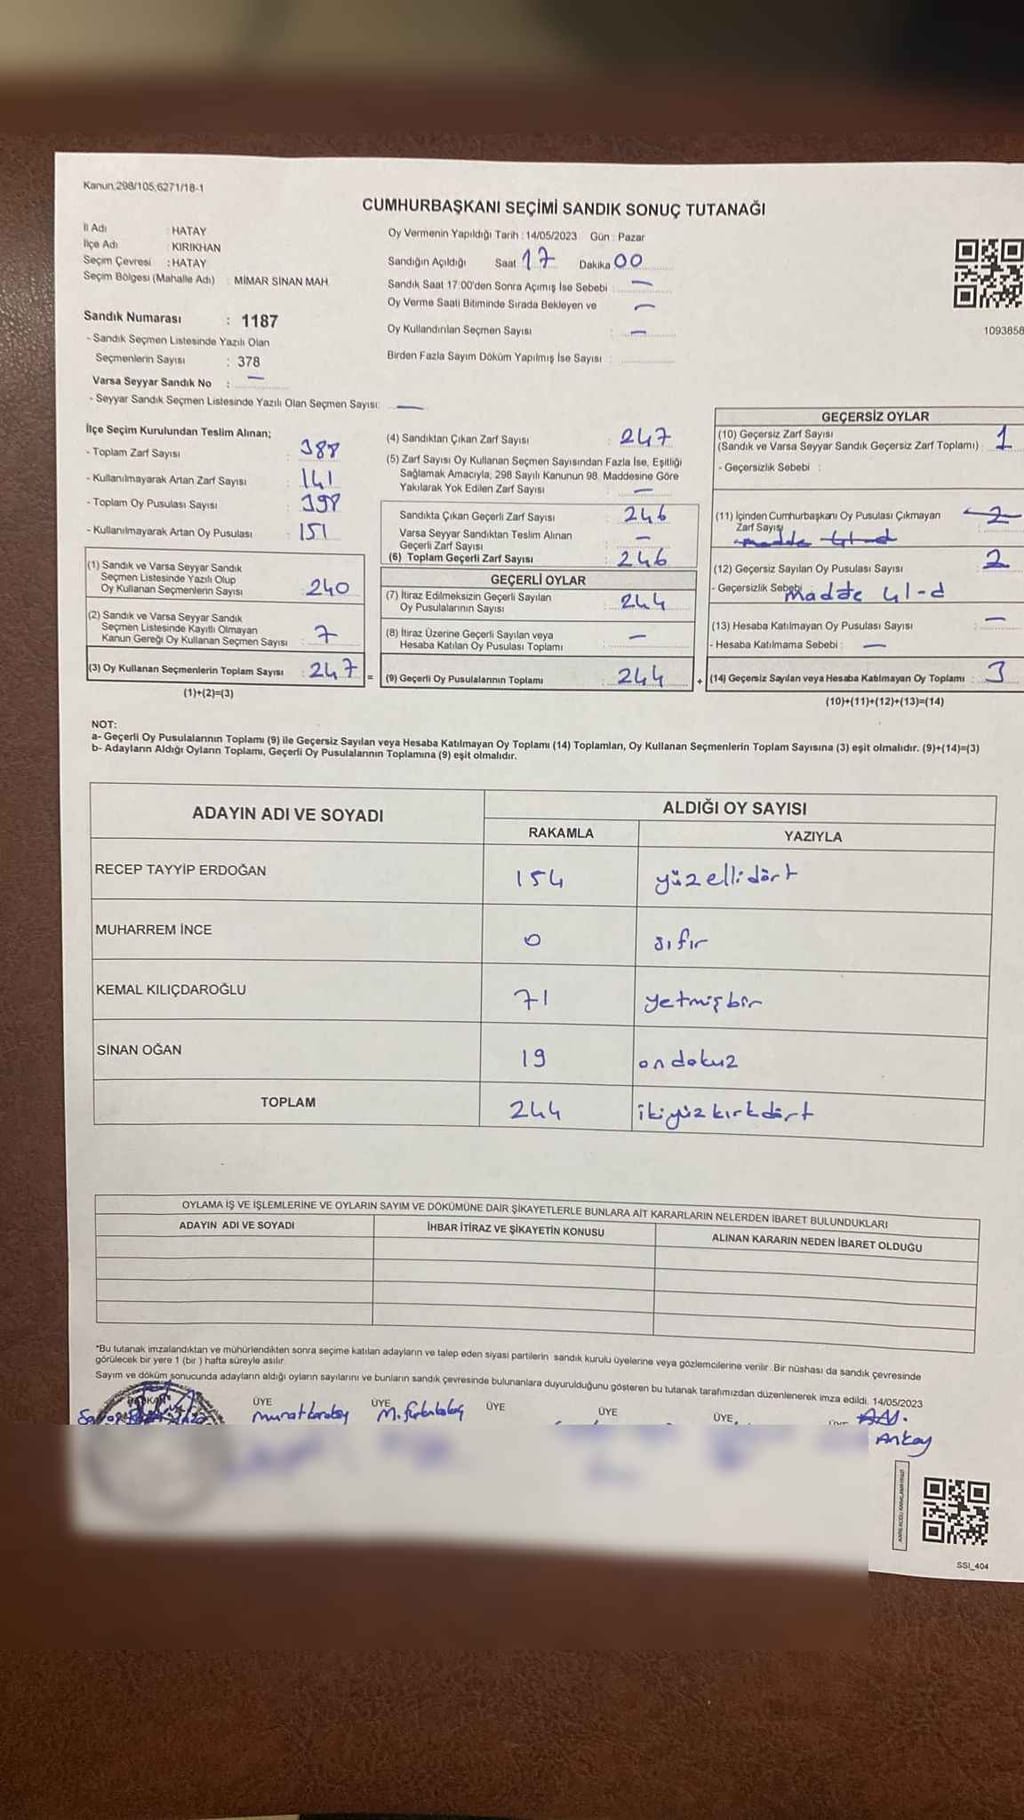 Kanun,298/105,6271/18-1
CUMHURBAŞKANI SEÇİMİ SANDIK SONUÇ TUTANAĞI
İl Adı : HATAY
İlçe Adı : KIRIKHAN
Seçim Çevresi : HATAY
Seçim Bölgesi (Mahalle Adı) : MİMAR SİNAN MAH.
Sandık Numarası : 1187
- Sandık Seçmen Listesinde Yazılı Olan
Seçmenlerin Sayısı : 378
Varsa Seyyar Sandık No : —
- Seyyar Sandık Seçmen Listesinde Yazılı Olan Seçmen Sayısı: —
Oy Vermenin Yapıldığı Tarih : 14/05/2023 Gün : Pazar
Sandığın Açıldığı Saat 17 Dakika 00
Sandık Saat 17:00'den Sonra Açımış İse Sebebi : —
Oy Verme Saati Bitiminde Sırada Bekleyen ve —
Oy Kullandırılan Seçmen Sayısı : —
Birden Fazla Sayım Döküm Yapılmış İse Sayısı :
1093858
İlçe Seçim Kurulundan Teslim Alınan;
- Toplam Zarf Sayısı : 388
- Kullanılmayarak Artan Zarf Sayısı : 141
- Toplam Oy Pusulası Sayısı : 398
- Kullanılmayarak Artan Oy Pusulası : 151
(1) Sandık ve Varsa Seyyar Sandık
Seçmen Listesinde Yazılı Olup
Oy Kullanan Seçmenlerin Sayısı : 240
(2) Sandık ve Varsa Seyyar Sandık
Seçmen Listesinde Kayıtlı Olmayan
Kanun Gereği Oy Kullanan Seçmen Sayısı : 7
(3) Oy Kullanan Seçmenlerin Toplam Sayısı : 247 =
(1)+(2)=(3)
(4) Sandıktan Çıkan Zarf Sayısı : 247
(5) Zarf Sayısı Oy Kullanan Seçmen Sayısından Fazla İse, Eşitliği
Sağlamak Amacıyla, 298 Sayılı Kanunun 98. Maddesine Göre
Yakılarak Yok Edilen Zarf Sayısı : —
Sandıkta Çıkan Geçerli Zarf Sayısı : 246
Varsa Seyyar Sandıktan Teslim Alınan
Geçerli Zarf Sayısı : —
(6) Toplam Geçerli Zarf Sayısı : 246
GEÇERLİ OYLAR
(7) İtiraz Edilmeksizin Geçerli Sayılan
Oy Pusulalarının Sayısı : 244
(8) İtiraz Üzerine Geçerli Sayılan veya
Hesaba Katılan Oy Pusulası Toplamı : —
(9) Geçerli Oy Pusulalarının Toplamı : 244 +
GEÇERSİZ OYLAR
(10) Geçersiz Zarf Sayısı
(Sandık ve Varsa Seyyar Sandık Geçersiz Zarf Toplamı) : 1
- Geçersizlik Sebebi :
(11) İçinden Cumhurbaşkanı Oy Pusulası Çıkmayan
Zarf Sayısı : 2
madde 41-d
(12) Geçersiz Sayılan Oy Pusulası Sayısı : 2
- Geçersizlik Sebebi : madde 41-d
(13) Hesaba Katılmayan Oy Pusulası Sayısı : —
- Hesaba Katılmama Sebebi : —
(14) Geçersiz Sayılan veya Hesaba Katılmayan Oy Toplamı : 3
(10)+(11)+(12)+(13)=(14)
NOT:
a- Geçerli Oy Pusulalarının Toplamı (9) ile Geçersiz Sayılan veya Hesaba Katılmayan Oy Toplamı (14) Toplamları, Oy Kullanan Seçmenlerin Toplam Sayısına (3) eşit olmalıdır. (9)+(14)=(3)
b- Adayların Aldığı Oyların Toplamı, Geçerli Oy Pusulalarının Toplamına (9) eşit olmalıdır.
ADAYIN ADI VE SOYADI ALDIĞI OY SAYISI
RAKAMLA YAZIYLA
RECEP TAYYİP ERDOĞAN 154 yüzellidört
MUHARREM İNCE 0 sıfır
KEMAL KILIÇDAROĞLU 71 yetmişbir
SİNAN OĞAN 19 ondokuz
TOPLAM 244 ikiyüzkırkdört
OYLAMA İŞ VE İŞLEMLERİNE VE OYLARIN SAYIM VE DÖKÜMÜNE DAİR ŞİKAYETLERLE BUNLARA AİT KARARLARIN NELERDEN İBARET BULUNDUKLARI
ADAYIN ADI VE SOYADI İHBAR İTİRAZ VE ŞİKAYETİN KONUSU ALINAN KARARIN NEDEN İBARET OLDUĞU
*Bu tutanak imzalandıktan ve mühürlendikten sonra seçime katılan adayların ve talep eden siyasi partilerin sandık kurulu üyelerine veya gözlemcilerine verilir. Bir nüshası da sandık çevresinde
görülecek bir yere 1 (bir ) hafta süreyle asılır.
Sayım ve döküm sonucunda adayların aldığı oyların sayılarını ve bunların sandık çevresinde bulunanlara duyurulduğunu gösteren bu tutanak tarafımızdan düzenlenerek imza edildi. 14/05/2023
BAŞKAN ÜYE ÜYE ÜYE ÜYE ÜYE
SSI_404